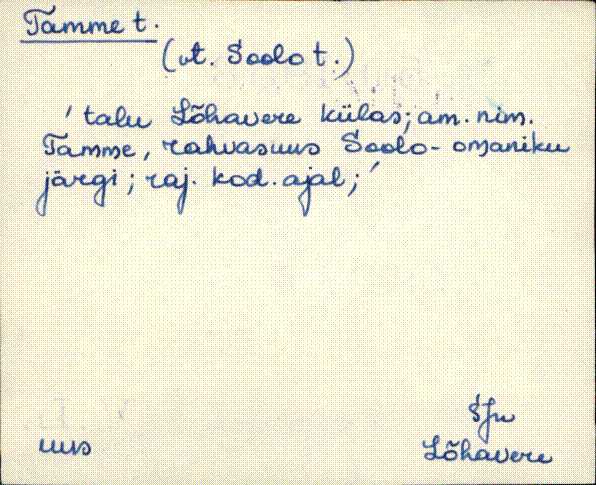 Tamme t.
(vt. Soolo t.)
' talu Lõhavere külas; am. nim.
Tamme, rahvasuus Soolo- omaniku
järgi; raj. kod. ajal; '
SJn
uus
Lõhavere